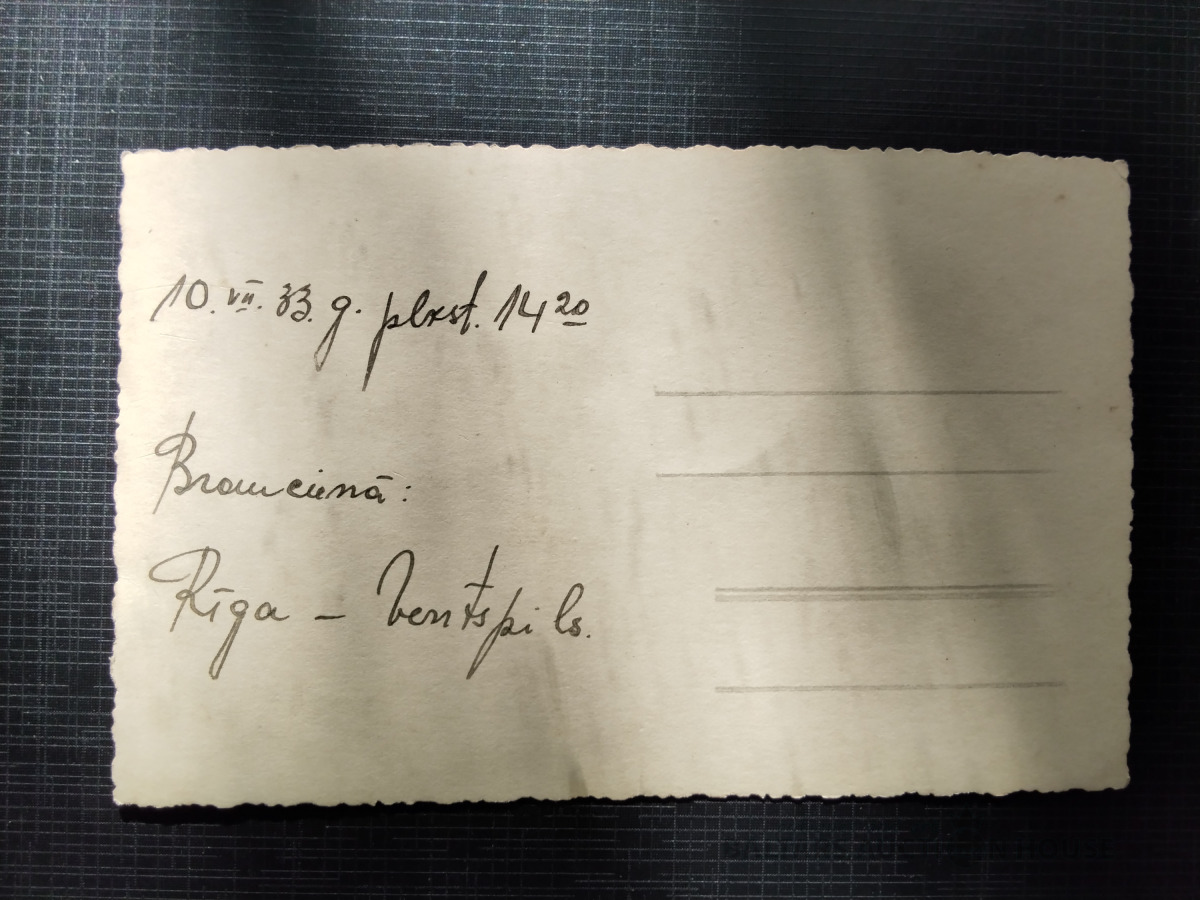 10. VII. 33. g. plkst. 14²⁰
Braucienā:
Rīga – Ventspils.